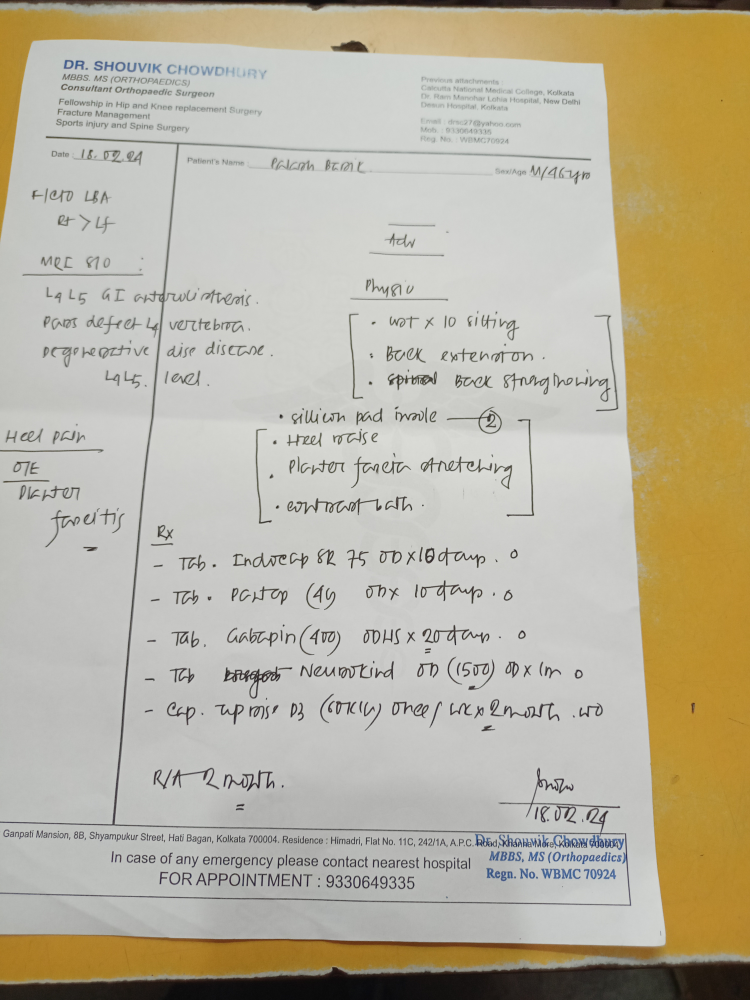 DR. SHOUVIK CHOWDHURY
MBBS. MS (ORTHOPAEDICS)
Consultant Orthopaedic Surgeon
Fellowship in Hip and Knee replacement Surgery
Fracture Management
Sports injury and Spine Surgery
Previous attachments :
Calcutta National Medical College, Kolkata
Dr. Ram Manohar Lohia Hospital, New Delhi
Desun Hospital, Kolkata
Email : drsc27@yahoo.com
Mob. : 9330649335
Reg. No. : WBMC70924
Date : 18.02.24
Patient's Name :
Sex/Age M/46 yrs
LBA
Rt > Lt
MRI S/O :
L4 L5 GI anterolisthesis.
Pars defect L4 vertebra.
Degenerative disc disease.
L4L5. level.
Heel pain
O/E
Planter
fascitis
Adv
Physio
x 10 sitting
• Back extension.
• Back strengthening
• sillicon pad insole — 2
• Heel raise
• Planter fascia stretching
• contrast bath.
Rx
- Tab. Indocap SR 75 OD x 10 days. 0
- Tab. Pantop (40 OD x 10 days. 0
- Tab. Gabapin (400) ODHS x 20 days. 0
- Tab Neurokind OD (1500) OD x 1m 0
- Cap. Uprise D3 (60K IU) once / wk x 2 month.
R/A 2 month.
18.02.24
Ganpati Mansion, 8B, Shyampukur Street, Hati Bagan, Kolkata 700004. Residence : Himadri, Flat No. 11C, 242/1A, A.P.C. Road, Khanna More, Kolkata
In case of any emergency please contact nearest hospital
FOR APPOINTMENT : 9330649335
Dr. Shouvik Chowdhury
MBBS, MS (Orthopaedics)
Regn. No. WBMC 70924